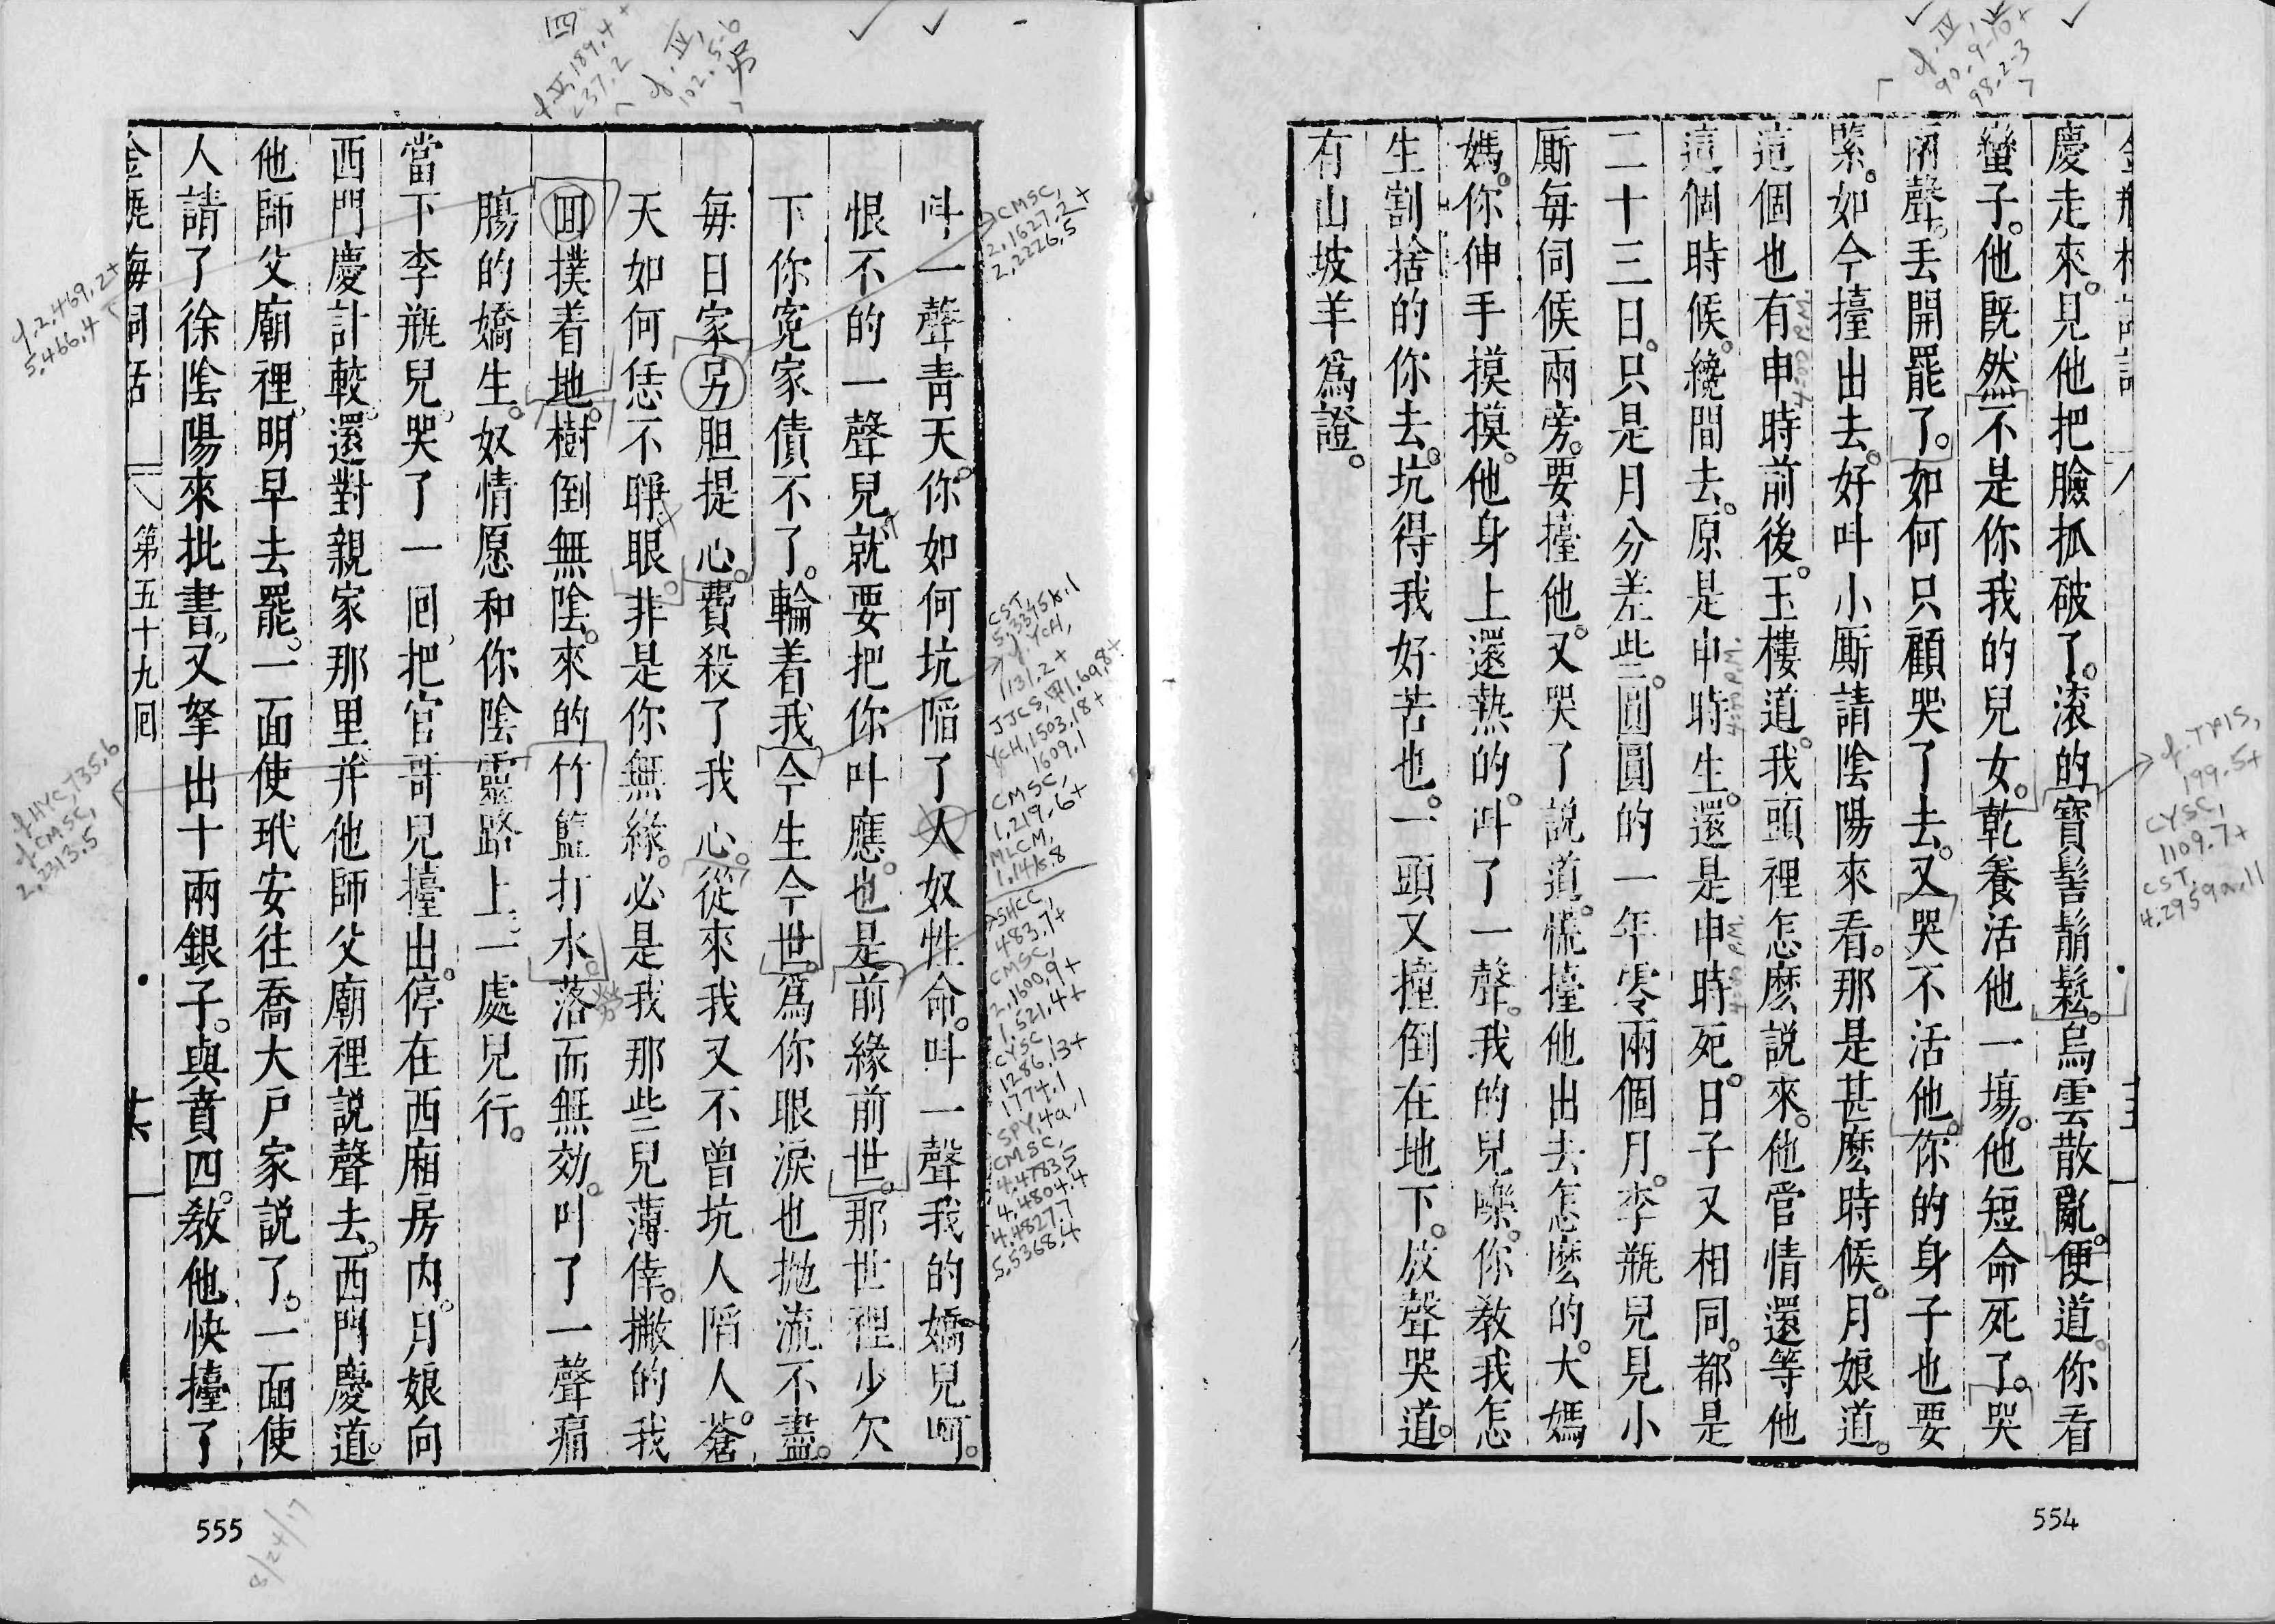 慶走來。見他把臉抓破了。滾的寶髻鬅鬆。烏雲散亂。便道。你看
蠻子。他既然不是你我的兒女。乾養活他一場。他短命死了。哭
兩聲。丟開罷了。如何只顧哭了去。又哭不活他。你的身子也要
緊。如今擡出去。好叫小厮請陰陽來看。那是甚麽時候。月娘道。
這個也有申時前後。玉樓道。我頭裡怎麽說來。他管情還等他
這個時候。纔間去。原是申時生。還是申時死。日子又相同。都是
二十三日。只是月分差些。圓圓的一年零兩個月。李瓶兒見小
厮每伺候兩旁。要擡他。又哭了說道。慌擡他出去怎麽的。大媽
媽。你伸手摸摸。他身上還熱的。叫了一聲。我的兒嚛。你教我怎
生割捨的你去。坑得我好苦也。一頭又撞倒在地下。放聲哭道。
有山坡羊爲證。
554
叫一聲青天。你如何坑陷了人奴性命。叫一聲我的嬌兒呵。
恨不的一聲兒就要把你叫應。也是前緣前世。那世裡少欠
下你寃家債不了。輪着我今生今世。爲你眼淚也拋流不盡。
每日家另胆提心。費殺了我心。從來我又不曾坑人陷人。蒼
天如何恁不睜眼。非是你無緣。必是我那些兒薄倖。撇的我
囬撲着地。樹倒無陰。來的竹籃打水。落而無効。叫了一聲痛
腸的嬌生。奴情愿和你陰靈路上。一處兒行。
當下李瓶兒。哭了一回。把官哥兒擡出。停在西廂房內。月娘向
西門慶計較。還對親家那里并他師父廟裡說聲去。西門慶道。
他師父廟裡。明早去罷。一面使玳安往喬大戶家說了。一面使
人請了徐陰陽來批書。又拏出十兩銀子。與賁四。教他快擡了
金瓶梅詞話 八 第五十九回
555
8/24/17